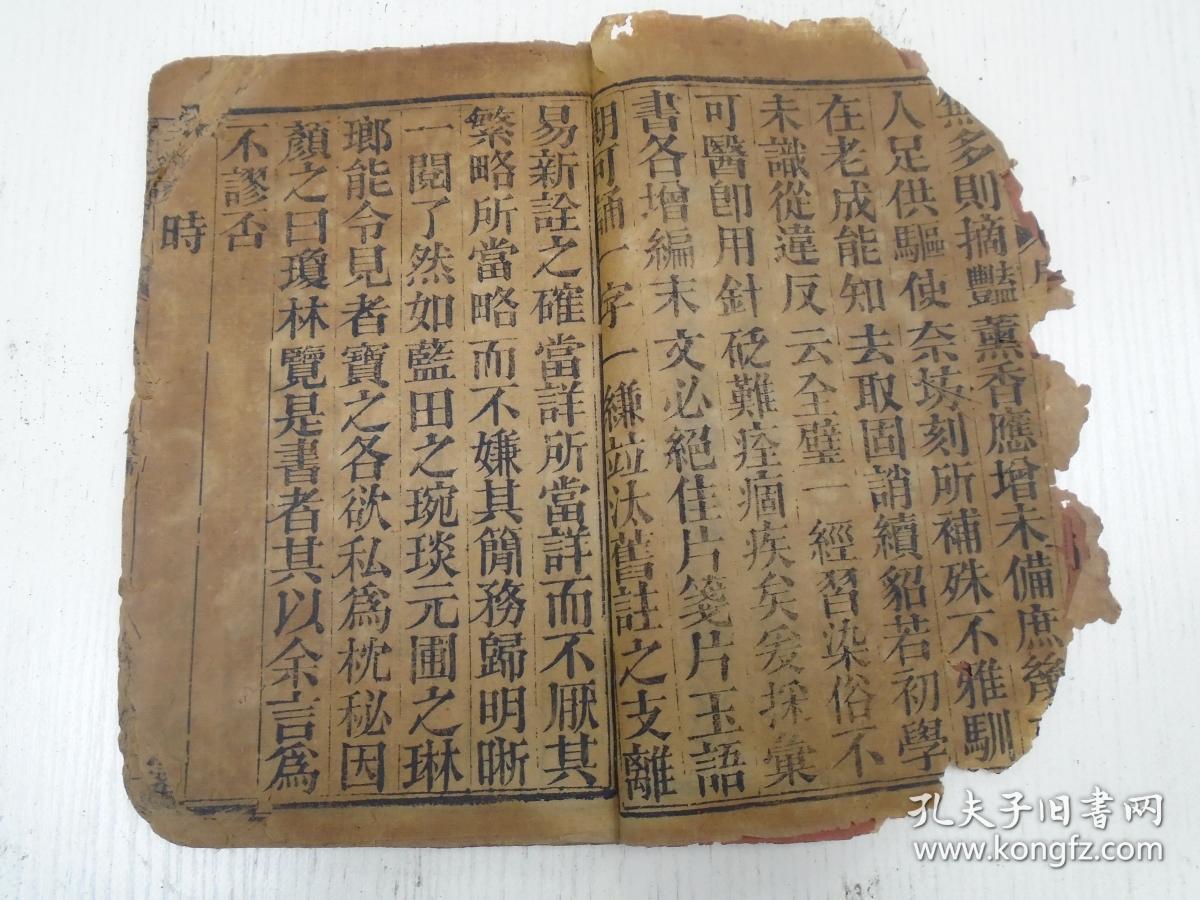 無多則摘豔薰香應增未備庶幾
人足供驅使奈坊刻所補殊不雅馴
在老成能知去取固誚續貂若初學
未識從違反云全璧一經習染俗不
可醫卽用針砭難痊痼疾矣爰採彙
書各增編末文必絕佳片箋片玉語
期可誦一字一縑並汰舊註之支離
易新詮之確當詳所當詳而不厭其
繁略所當略而不嫌其簡務歸明晰
一閱了然如藍田之琬琰元圃之琳
瑯能令見者寶之各欲私爲枕秘因
顏之曰瓊林覽是書者其以余言爲
不謬否
時
孔夫子旧书网
www.kongfz.com